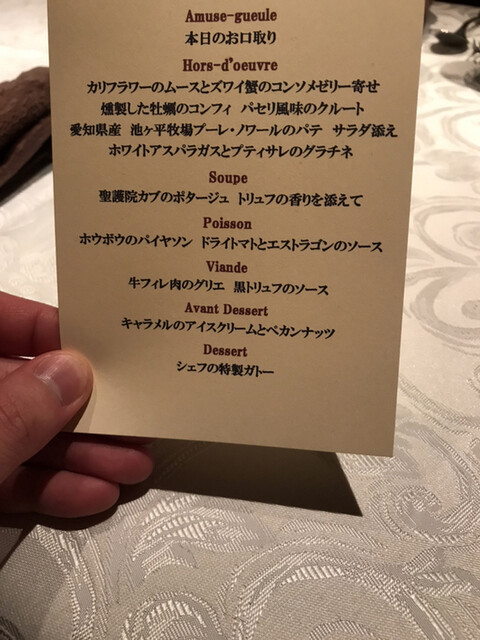 Amuse-gueule
本日のお口取り
Hors-d'oeuvre
カリフラワーのムースとズワイ蟹のコンソメゼリー寄せ
燻製した牡蠣のコンフィ パセリ風味のクルート
愛知県産 池ヶ平牧場プーレ・ノワールのパテ サラダ添え
ホワイトアスパラガスとプティサレのグラチネ
Soupe
聖護院カブのポタージュ トリュフの香りを添えて
Poisson
ホウボウのパイヤソン ドライトマトとエストラゴンのソース
Viande
牛フィレ肉のグリエ 黒トリュフのソース
Avant Dessert
キャラメルのアイスクリームとペカンナッツ
Dessert
シェフの特製ガトー